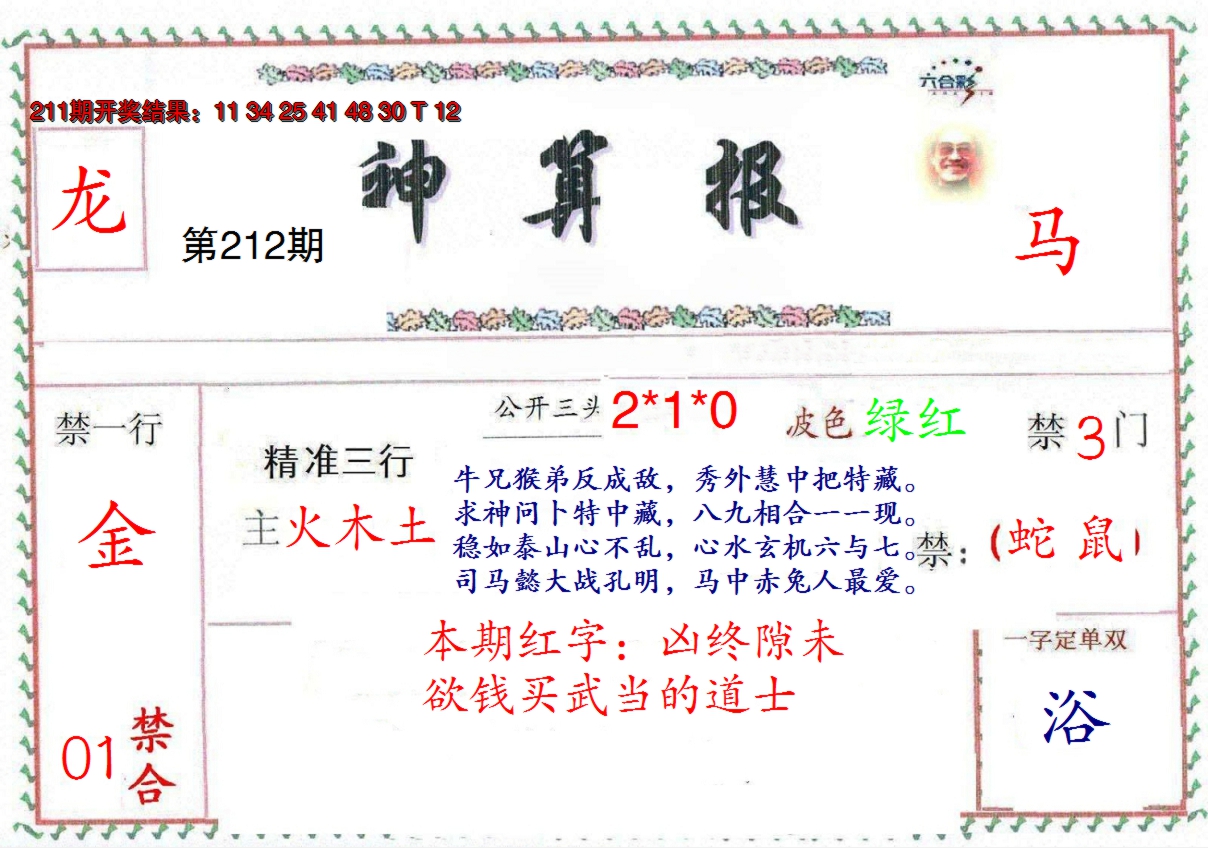 六合彩
211期开奖结果：11 34 25 41 48 30 T 12
神算报
龙
第212期
马
公开三头 2*1*0
波色 绿红
禁一行
禁3门
精准三行
主火木土
牛兄猴弟反成敌，秀外慧中把特藏。
求神问卜特中藏，八九相合一一现。
稳如泰山心不乱，心水玄机六与七。
司马懿大战孔明，马中赤兔人最爱。
禁：（蛇 鼠）
金
本期红字：凶终隙未
欲钱买武当的道士
一字定单双
浴
01
禁合